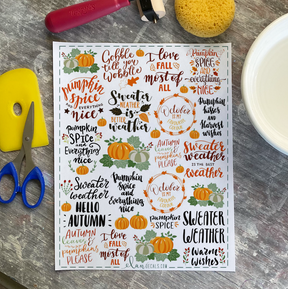 Gobble
till you
Wobble
Sweater
weather
I love
FALL
most of
all
PUMPKIN
SPICE
and
everything
nice
pumpkin
spice
EVERYTHING
NICE
Sweater
WEATHER
IS
BETTER
weather
October
Pumpkin
kisses
and
Harvest
wishes
pumpkin
SPICE
and
everything
nice
AUTUMN
leaves &
pumpkins
PLEASE
Sweater
weather
IS THE BEST
WEATHER
Sweater
weather
HELLO
AUTUMN
Pumpkin
Spice
and everything
nice
October
pumpkin
SPICE
SWEATER
WEATHER
AUTUMN
leaves &
pumpkins
PLEASE
I love
FALL
most of all
Warm
wishes